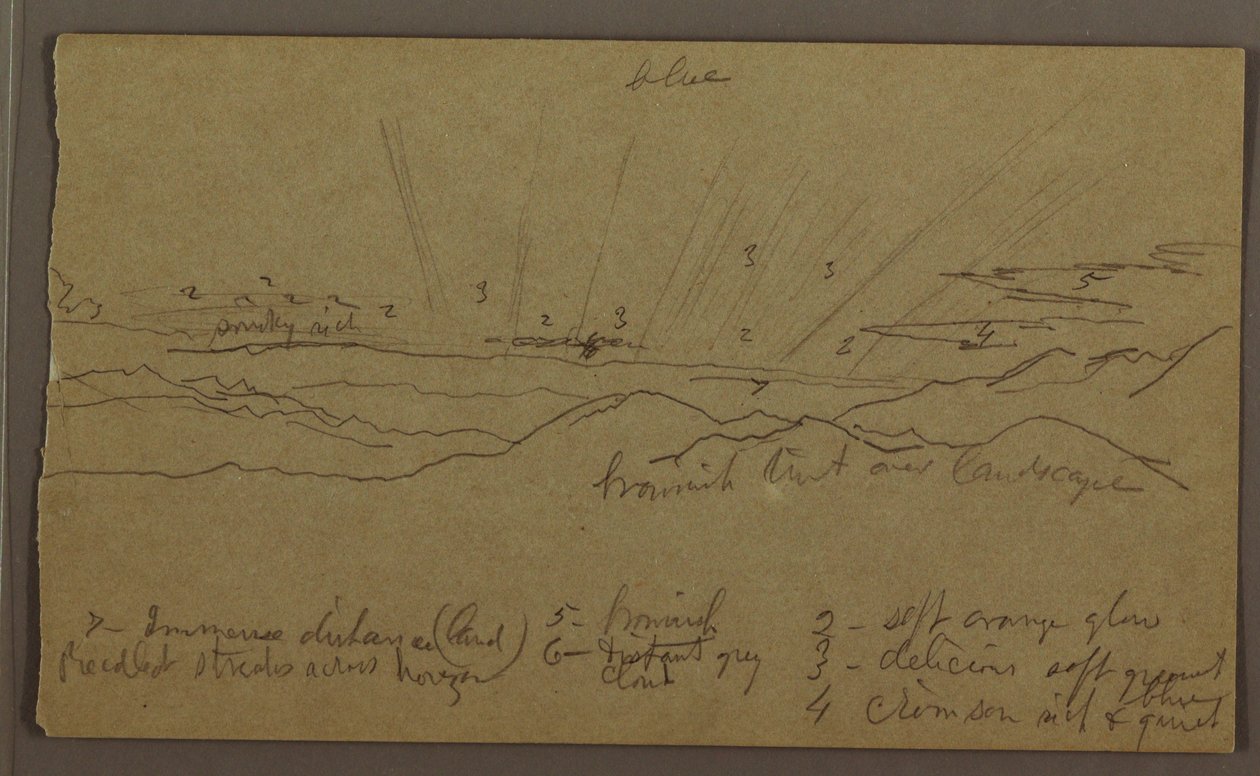 blue
3
3
2
2 2 2 2
2
3
5
smoky rich
2
3
2
2
4
7
brownish tint over landscape
7- Immense distance (land)
streaks across horizon
5- brownish
6- distant grey
cloud
2 - soft orange glow
3 - delicious soft greenish
blue
4 crimson rich & quiet